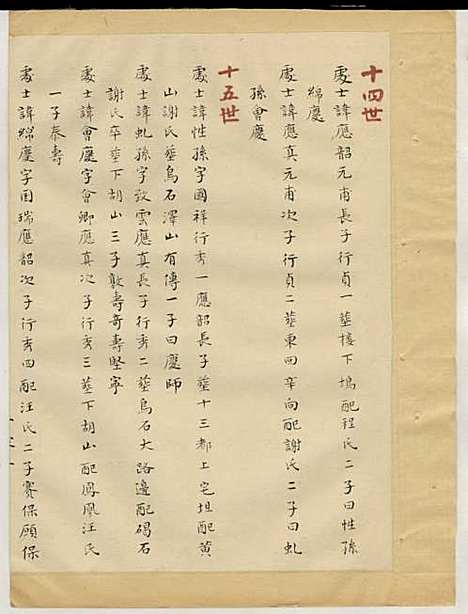 十四世
處士諱應韶元甫長子行貞一塟棲下塢配程氏二子曰性孫
綿慶
處士諱應真元甫次子行貞二塟東四辛向配謝氏二子曰虬
孫會慶
十五世
處士諱性孫字國祥行秀一應韶長子塟十三都上宅坦配黄
山謝氏塟烏石澤山有傳一子曰慶師
處士諱虬孫字致雲應真長子行秀二塟烏石大路邊配碣石
謝氏卒塟下胡山三子敦壽奇壽堅寧
處士諱會慶字會卿應真次子行秀三塟下胡山配鳳凰汪氏
一子泰壽
處士諱綿慶字國瑞應韶次子行秀四配汪氏二子賽保願保